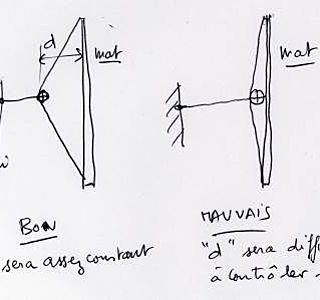 d
mat
mat
BON
sera assez constant
MAUVAIS
"d" sera diffi
à contrôler